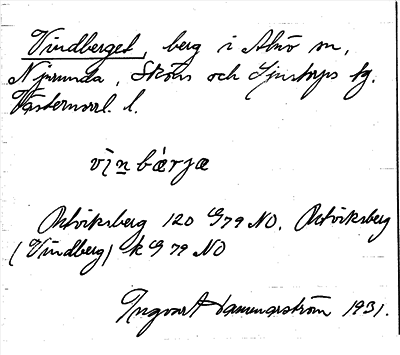 Vindberget, berg i Alnö sn,
Njurunda, Sköns och Ljustorps tg.
Västernorrl. l.
vìn bærjæ
Ortviksberg 120 G 79 NO. Ortviksberg
(Vindberg) k G 79 NO
Ingvart Hammarström 1931.